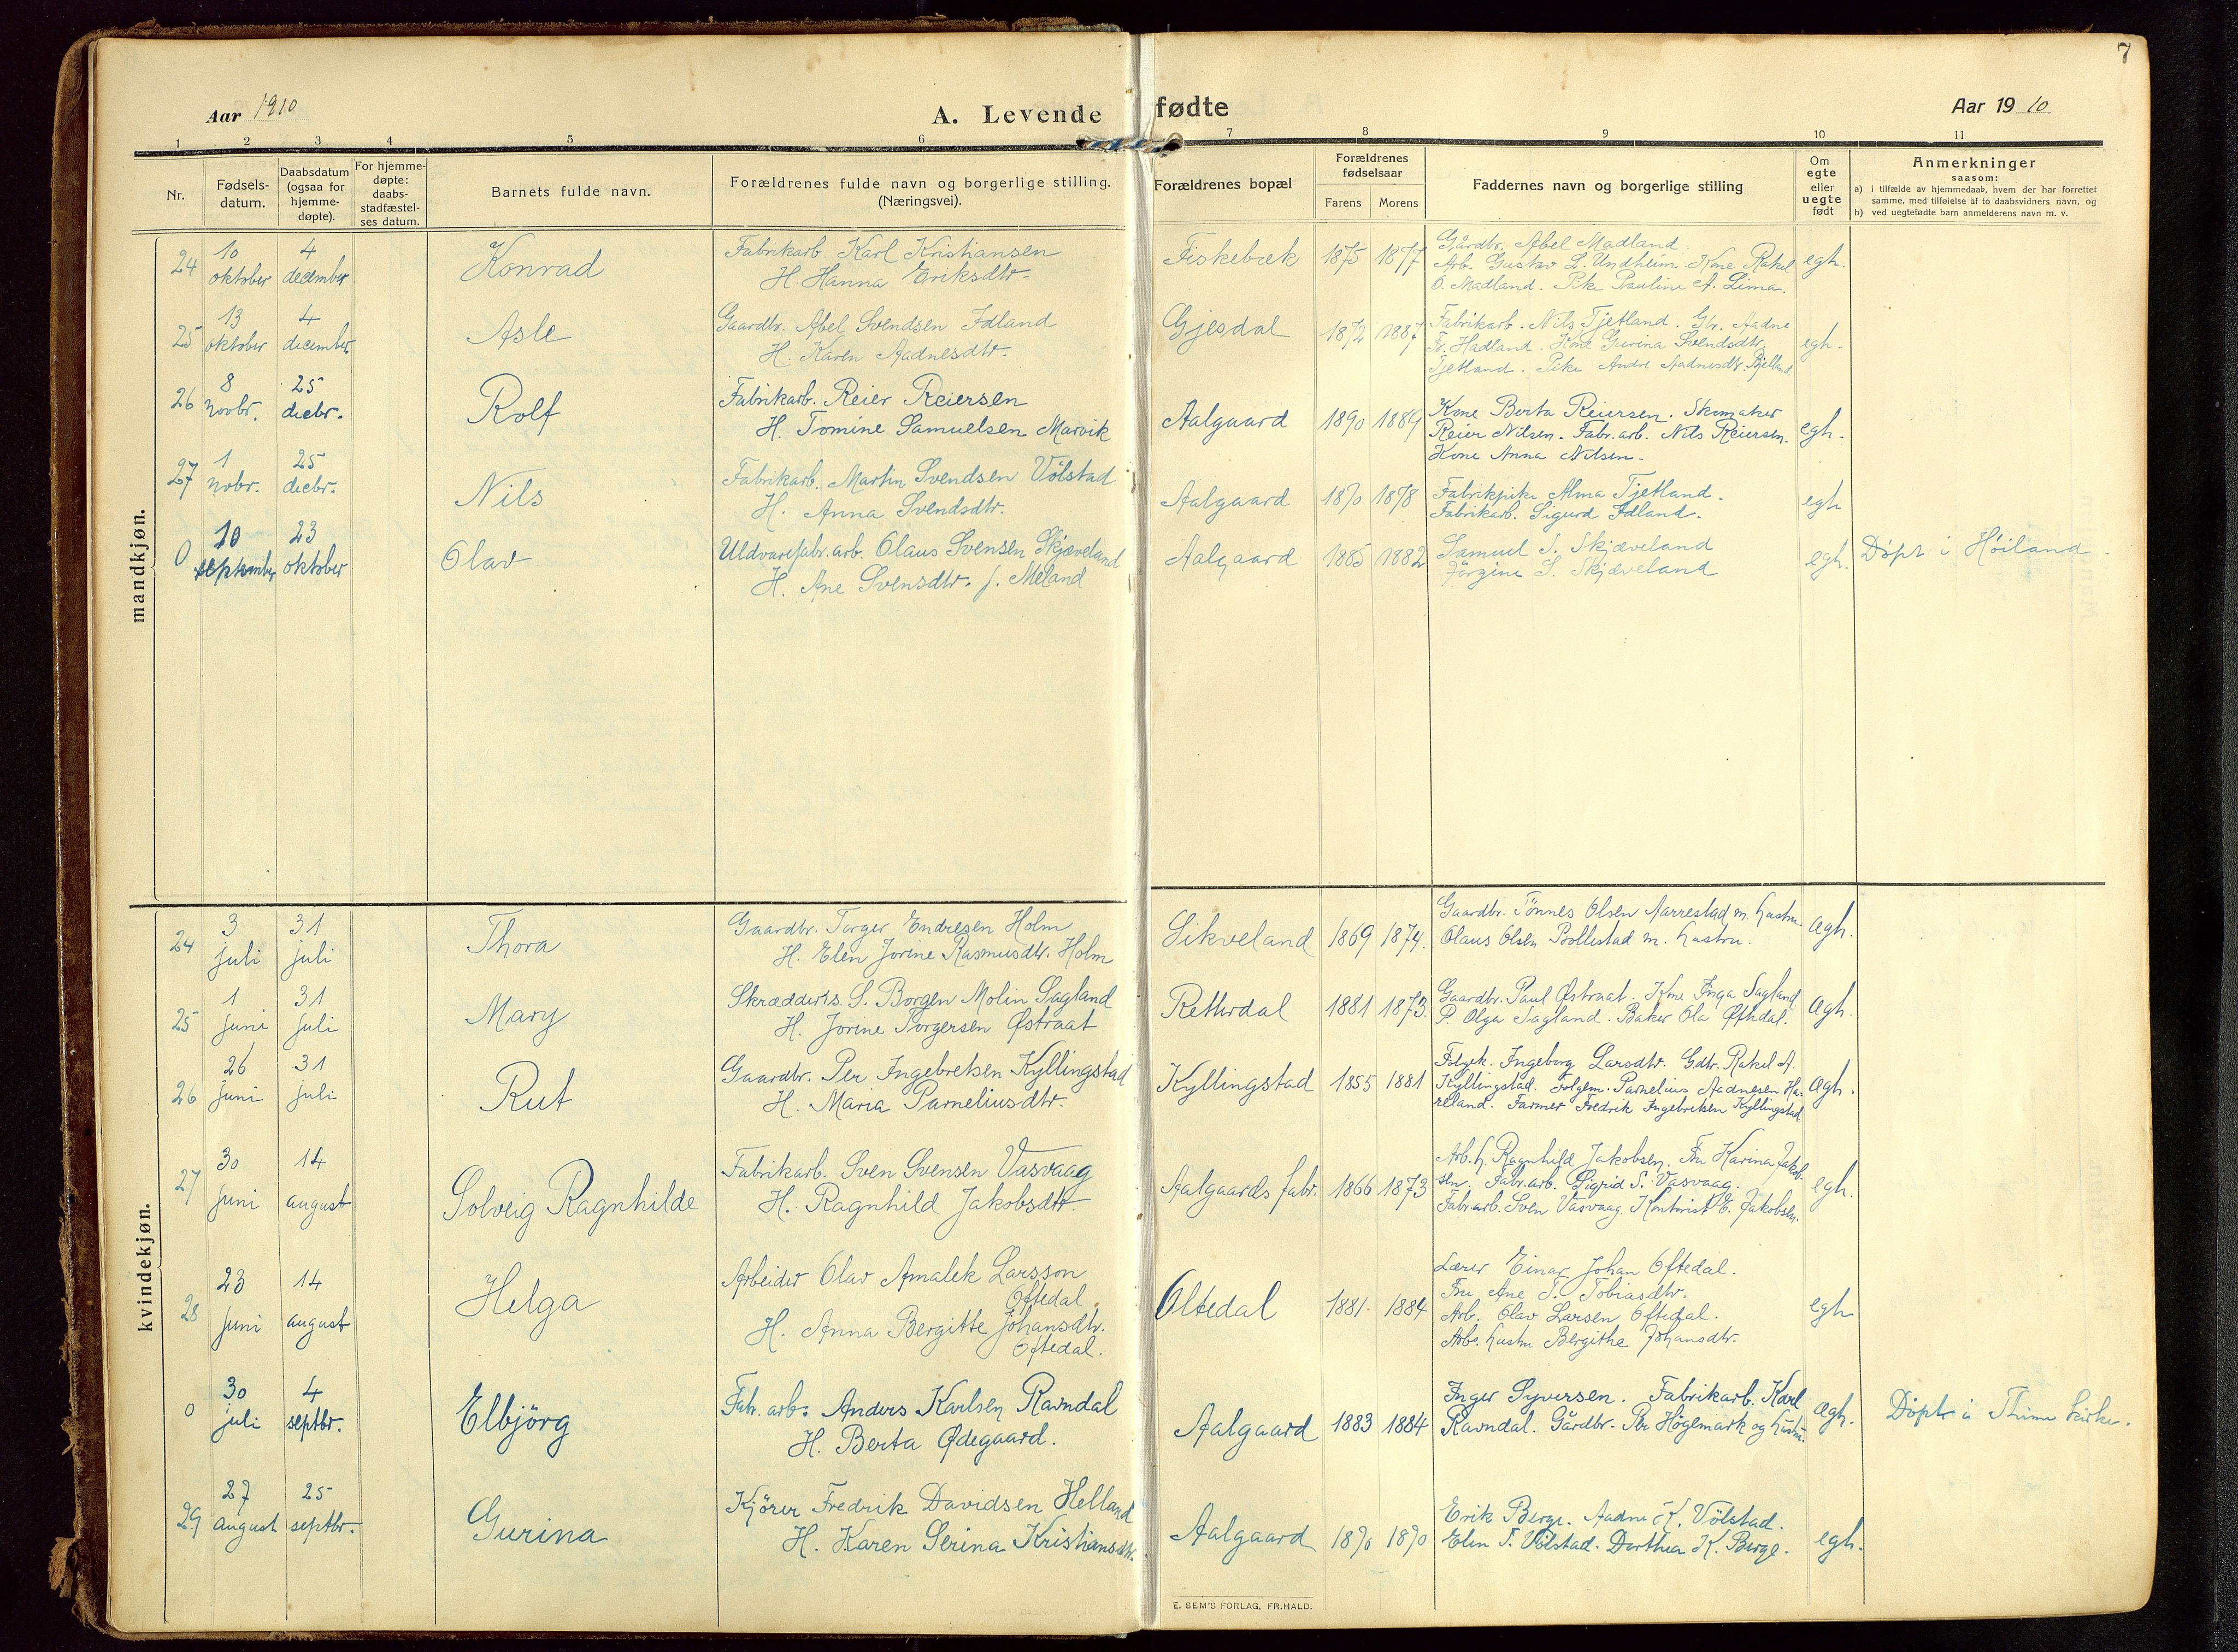 7
Aar 1910
A. Levende fødte
Aar 1910
1 2 3 4 5 6 7 8 9 10 11
Nr.
Fødsels-
datum.
Daabsdatum
(ogsaa for
hjemme-
døpte).
For hjemme-
døpte:
daabs-
stadfæstel-
ses datum.
Barnets fulde navn.
Forældrenes fulde navn og borgerlige stilling.
(Næringsvei).
Forældrenes bopæl
Forældrenes
fødselsaar
Farens Morens
Faddernes navn og borgerlige stilling
Om
egte
eller
uegte
født
Anmerkninger
saasom:
a) i tilfælde av hjemmedaab, hvem der har forrettet
samme, med tilføielse af to daabsvidners navn, og
b) ved uegtefødte barn anmelderens navn m. v.
mandkjøn.
24
10
oktober
4
december
Konrad
Fabrikarb. Karl Kristiansen
H. Hanna Eriksdtr.
Fiskebæk
1875 1877
Gårdbr. Abel Madland.
Arb. Gustav L. Undheim Kone Rakel
O. Madland. Pike Pauline A. Lima.
egh.
25
13
oktober
4
december
Asle
Gaardbr. Abel Svendsen Idland
H. Karen Aadnesdtr.
Gjesdal
1872 1887
Fabrikarb. Nils Tjetland. Gbr. Aadne
Tr. Hadland. Kone Gurina Svendsdtr.
Tjetland. Pike Andre Aadnesdtr.
egh.
26
8
novbr.
25
decbr.
Rolf
Fabrikarb. Reier Reiersen
H. Tomine Samuelsen Marvik
Aalgaard
1890 1889
Kone Berta Reiersen. Skomaker
Reier Nilsen. Fabr. arb. Nils Reiersen.
Kone Anna Nilsen.
egh.
27
1
nobr.
25
decbr.
Nils
Fabrikarb. Martin Svendsen Völstad
H. Anna Svendsdtr.
Aalgaard
1870 1878
Fabrikpike Alma Tjetland.
Fabrikarb. Sigurd Idland.
egh
0
10
september
23
oktober
Olav
Uldvarefabr. arb. Olaus Svensen Skjæveland
H. Ane Svensdtr. f. Meland
Aalgaard
1885 1882
Samuel S. Skjæveland
Jörgine S. Skjæveland
egh.
Døpt i Høiland.
kvindekjøn.
24
3
juli
31
juli
Thora
Gaardbr. Torger Endresen Holm
H. Elen Jorine Rasmusdtr. Holm
Sikveland
1869 1874.
Gaardbr. Tönnes Olsen Aarrestad m. hustru.
Olaus Olsen Bollestad m. hustru.
ægh.
25
1
juni
31
juli
Mary
S. Borgen Molin Sagland
H. Jorine Torgersen Østraat
Retterdal
1881 1873.
Gaardbr. Paul Østraat. Kone Inga Sagland
P. Olga Sagland. Baker Ola Oftedal.
ægh.
26
26
juni
31
juli
Rut
Gaardbr. Per Ingebretsen Kyllingstad
H. Maria Parneliusdtr.
Kyllingstad
1855 1881
Folgek. Ingeborg Larsdtr. Gdtr. Rakel A.
Kyllingstad. Folgem. Parnelius Aadnesen Ha-
reland. Farmer Fredrik Ingebretsen Kyllingstad
ægh.
27
30
juni
14
august
Solveig Ragnhilde
Fabrikarb. Sven Svensen Vasvaag
H. Ragnhild Jakobsdtr.
Aalgaards fabr.
1866 1873
Arb. h. Ragnhild Jakobsen. Fru Karina Jakob-
sen. Fabr. arb. Sigrid S. Vasvaag.
Fabr. arb. Sven Vasvaag. Kontorist E. Jakobsen.
egh.
28
23
juni
14
august
Helga
Arbeider Olav Amalek Larsson
Oftedal.
H. Anna Bergitte Johansdtr.
Oftedal.
Oltedal
1881. 1884
Lærer Einar Johan Oftedal.
Fru Ane T. Tobiasdtr.
Arb. Olav Larsen Oftedal.
Arbs. hustru Bergithe Johansdtr.
egh
0
30
juli
4
septbr.
Elbjörg
Fabr. arb. Anders Karlsen Ravndal
H. Berta Ødegaard.
Aalgaard
1883 1884
Inger Syversen. Fabrikarb. Karl
Ravndal. Gårdbr. Per Högemark og hustru.
ægh.
Döpt i Thime kirke.
29
27
august
25
septbr.
Gurina
Kjörer Fredrik Davidsen Helland
H. Karen Serina Kristiansdtr.
Aalgaard
1870 1870
Erik Berge. Aadne K. Völstad.
Elen T. Völstad. Dorthea K. Berge.
egh.
E. SEM'S FORLAG, FR.HALD.